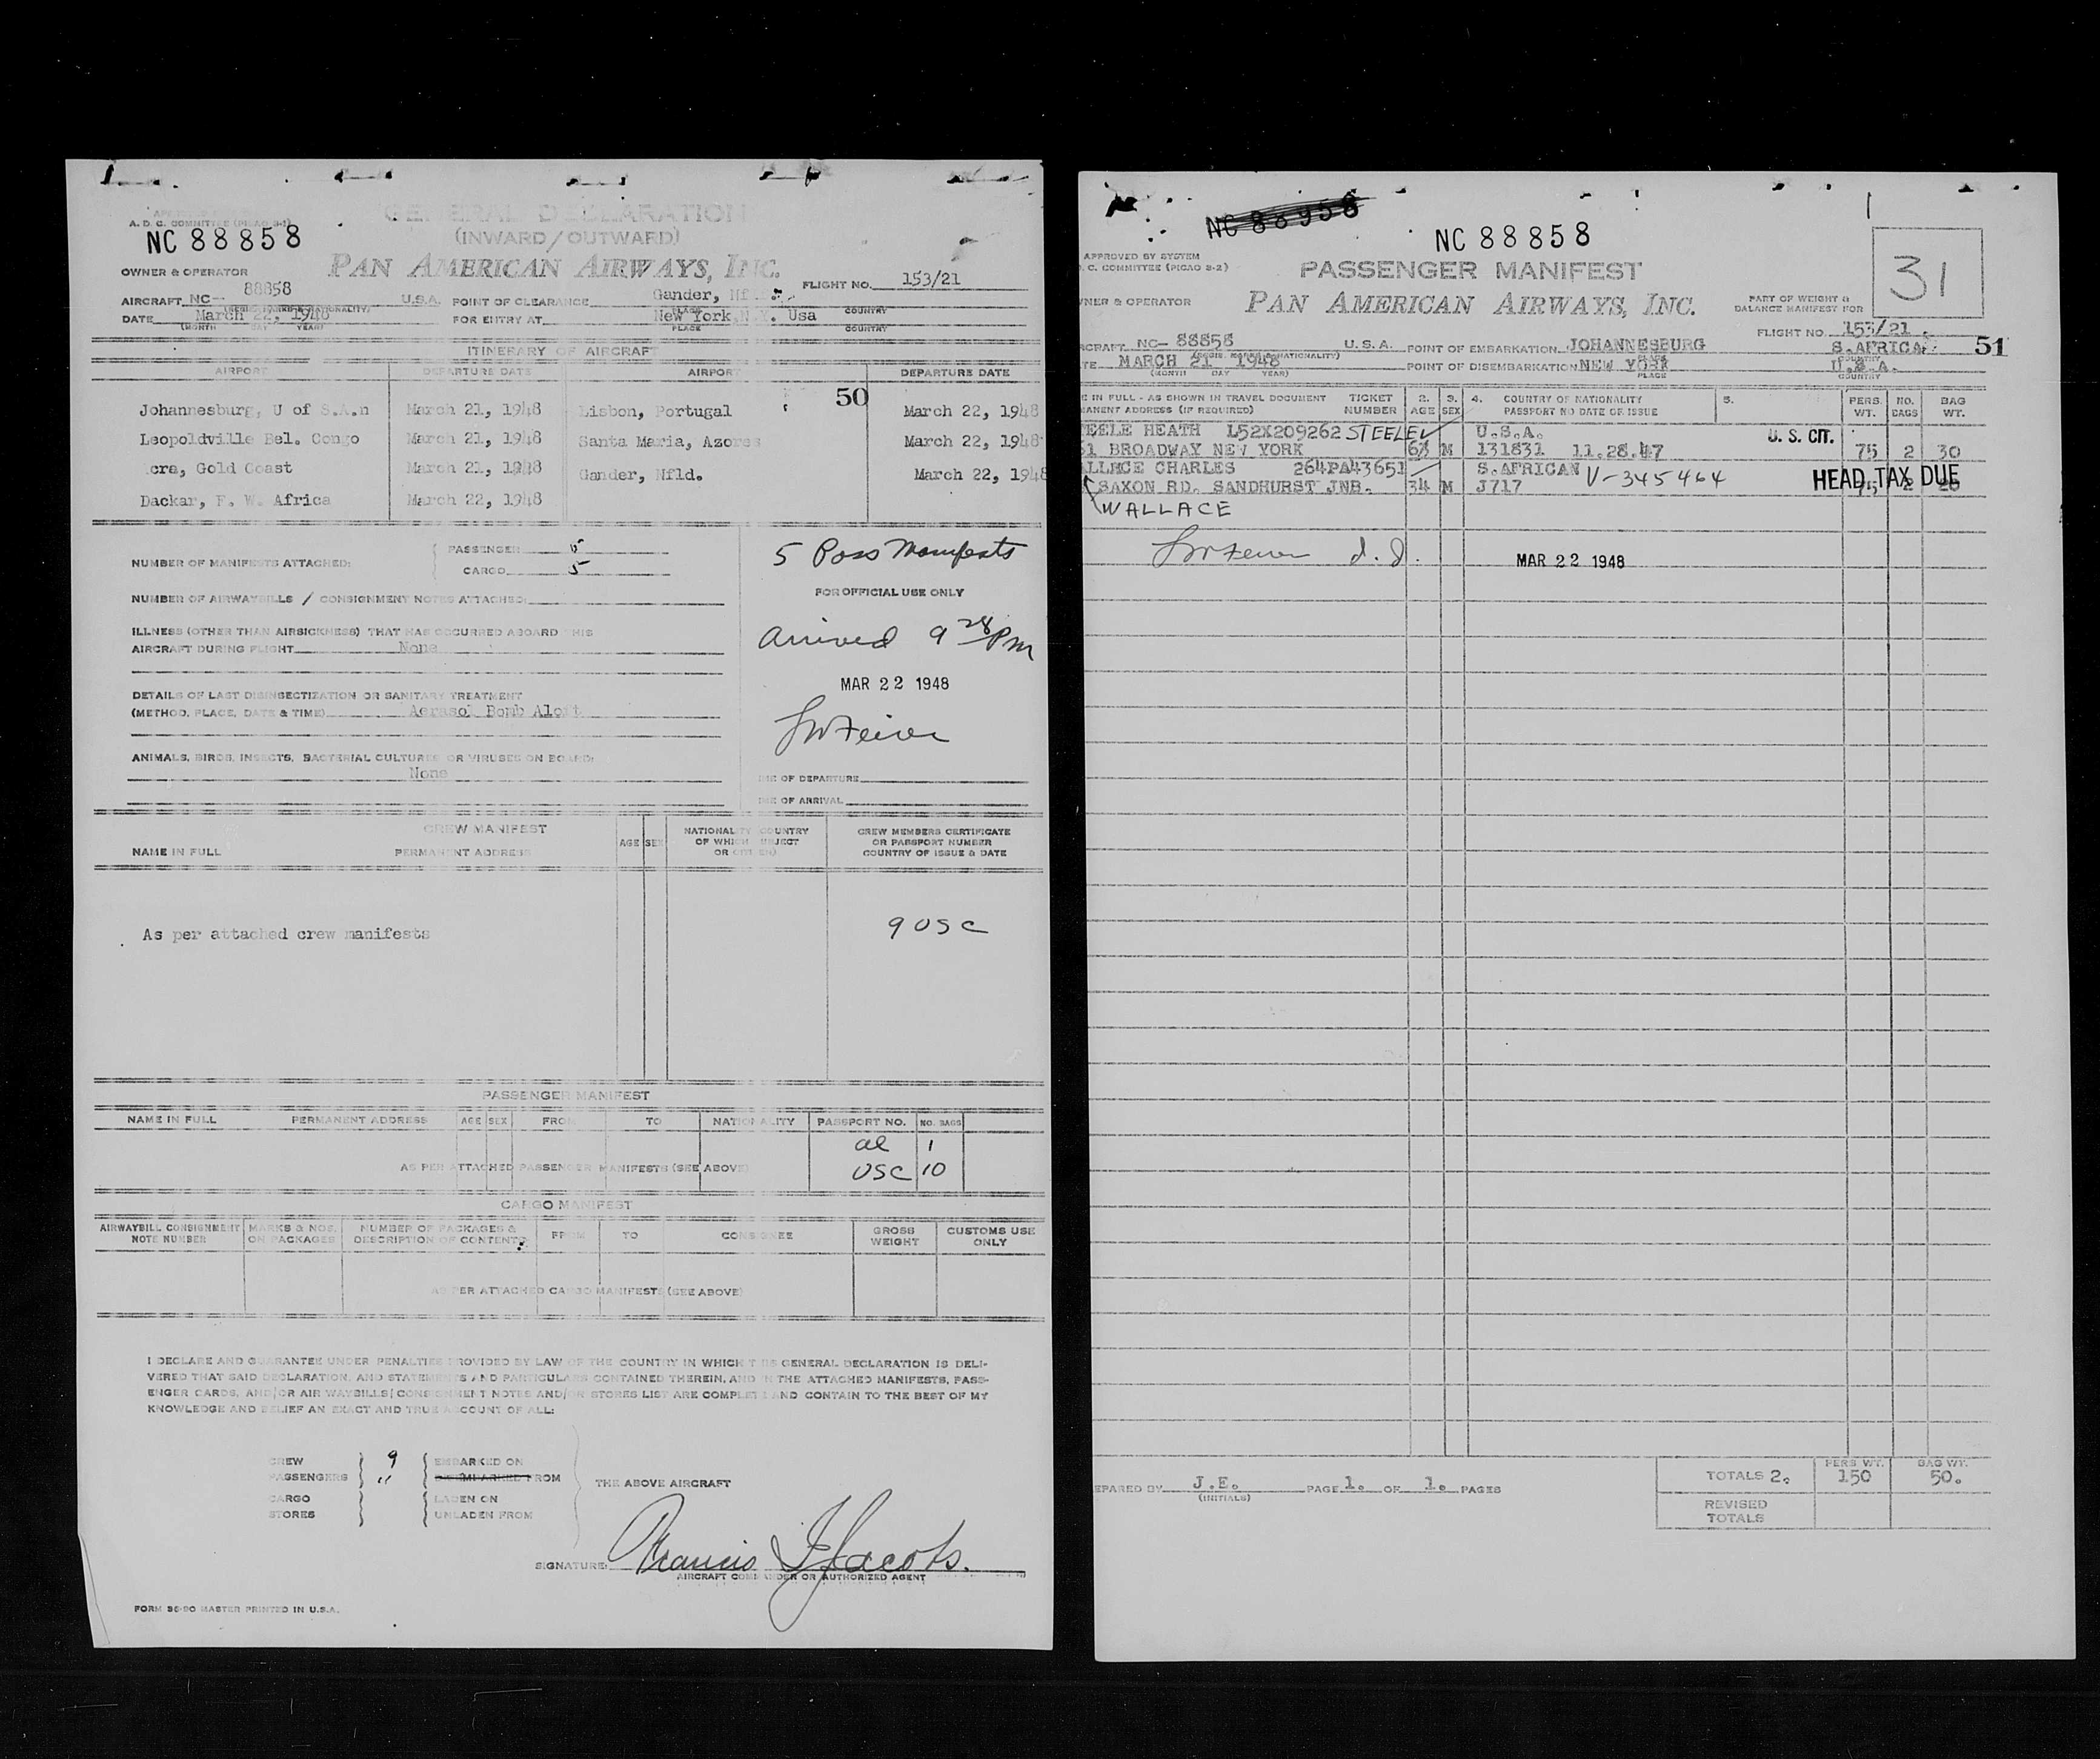 A. D. C. COMMITTEE (PICAO 8-2)
GENERAL DECLARATION
(INWARD/OUTWARD)
NC 88858
OWNER & OPERATOR
PAN AMERICAN AIRWAYS, INC.
FLIGHT NO. 153/21
AIRCRAFT NC- 88858 U.S.A. POINT OF CLEARANCE Gander,
DATE March 22, 1948 FOR ENTRY AT New York, N.Y. Usa
(MONTH DAY YEAR) PLACE COUNTRY
ITINERARY OF AIRCRAFT
AIRPORT DEPARTURE DATE AIRPORT DEPARTURE DATE
50
Johannesburg, U of S.A.n March 21, 1948 Lisbon, Portugal March 22, 1948
Leopoldville Bel. Congo March 21, 1948 Santa Maria, Azores March 22, 1948
cra, Gold Coast March 21, 1948 Gander, Nfld. March 22, 1948
Dackar, F. W. Africa March 22, 1948
NUMBER OF MANIFESTS ATTACHED:
PASSENGER 5
CARGO 5
5 Pass Manifests
NUMBER OF AIRWAYBILLS / CONSIGNMENT NOTES ATTACHED:
FOR OFFICIAL USE ONLY
ILLNESS (OTHER THAN AIRSICKNESS) THAT HAS OCCURRED ABOARD THIS
AIRCRAFT DURING FLIGHT None
Arrived 9 28 Pm
MAR 22 1948
DETAILS OF LAST DISINSECTIZATION OR SANITARY TREATMENT
(METHOD, PLACE, DATE & TIME) Aerasol Bomb Aloft
ANIMALS, BIRDS, INSECTS, BACTERIAL CULTURES OR VIRUSES ON BOARD:
None
TIME OF DEPARTURE
TIME OF ARRIVAL
CREW MANIFEST
NAME IN FULL PERMANENT ADDRESS AGE SEX NATIONALITY COUNTRY OF WHICH SUBJECT OR CITIZEN) CREW MEMBERS CERTIFICATE OR PASSPORT NUMBER COUNTRY OF ISSUE & DATE
As per attached crew manifests 9 USC
PASSENGER MANIFEST
NAME IN FULL PERMANENT ADDRESS AGE SEX FROM TO NATIONALITY PASSPORT NO. NO. BAGS
al 1
AS PER ATTACHED PASSENGER MANIFESTS (SEE ABOVE) USC 10
CARGO MANIFEST
AIRWAYBILL CONSIGNMENT NOTE NUMBER MARKS & NOS. ON PACKAGES NUMBER OF PACKAGES & DESCRIPTION OF CONTENTS FROM TO CONSIGNEE GROSS WEIGHT CUSTOMS USE ONLY
AS PER ATTACHED CARGO MANIFESTS (SEE ABOVE)
I DECLARE AND GUARANTEE UNDER PENALTIES PROVIDED BY LAW OF THE COUNTRY IN WHICH THIS GENERAL DECLARATION IS DELI-
VERED THAT SAID DECLARATION, AND STATEMENTS AND PARTICULARS CONTAINED THEREIN, AND IN THE ATTACHED MANIFESTS, PASS-
ENGER CARDS, AND/OR AIR WAYBILLS/CONSIGNMENT NOTES AND/OR STORES LIST ARE COMPLETE AND CONTAIN TO THE BEST OF MY
KNOWLEDGE AND BELIEF AN EXACT AND TRUE ACCOUNT OF ALL:
CREW 9 EMBARKED ON
PASSENGERS 11 DISEMBARKED FROM THE ABOVE AIRCRAFT
CARGO LADEN ON
STORES UNLADEN FROM
SIGNATURE: Francis J Jacobs.
AIRCRAFT COMMANDER OR AUTHORIZED AGENT
FORM 36-90 MASTER PRINTED IN U.S.A.
NC 88958
NC 88858
31
APPROVED BY SYSTEM
D. C. COMMITTEE (PICAO 8-2)
PASSENGER MANIFEST
OWNER & OPERATOR
PAN AMERICAN AIRWAYS, INC.
PART OF WEIGHT &
BALANCE MANIFEST FOR
FLIGHT NO. 153/21
AIRCRAFT NC- 88858 U.S.A. POINT OF EMBARKATION JOHANNESBURG S.AFRICA 51
DATE MARCH 21 1948 POINT OF DISEMBARKATION NEW YORK U.S.A.
(MONTH DAY YEAR) PLACE COUNTRY
E IN FULL - AS SHOWN IN TRAVEL DOCUMENT TICKET 2. 3. 4. COUNTRY OF NATIONALITY 5. PERS. NO. BAG
MANENT ADDRESS (IF REQUIRED) NUMBER AGE SEX PASSPORT NO DATE OF ISSUE WT. BAGS WT.
TEELE HEATH L52X209262 STEELE U.S.A. U. S. CIT.
61 BROADWAY NEW YORK 63 M 131831 11.28.47 75 2 30
ALLACE CHARLES 264PA43651 S.AFRICAN V-345464 HEAD TAX DUE
SAXON RD. SANDHURST JNB. 34 M J717 75 2 20
WALLACE
MAR 22 1948
PREPARED BY J.E. PAGE 1. OF 1. PAGES
(INITIALS)
PERS WT. BAG WT.
TOTALS 2. 150 50.
REVISED
TOTALS